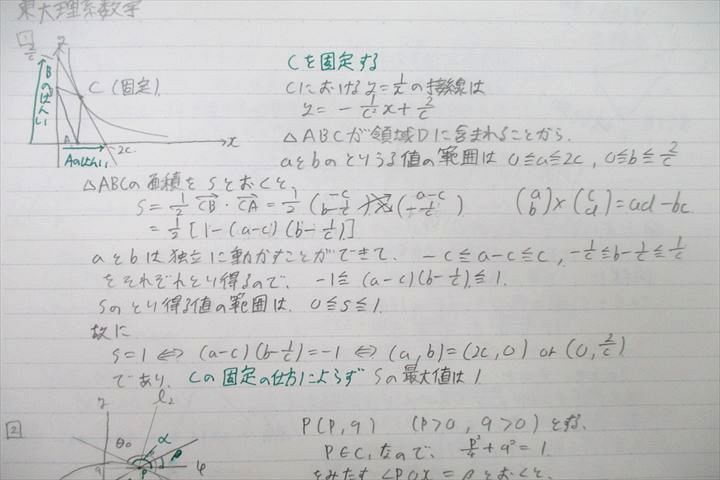 東大理系数学
1
2/c
y
C (固定)
Bのはんい
B
A
2c
x
Aのはんい
Cを固定する
Cにおけるy=1/xの接線は
y = -1/c² x + 2/c
△ABCが領域Dに含まれることから、
aとbのとりうる値の範囲は 0≦a≦2c, 0≦b≦2/c
△ABCの面積をSとおくと、
S = 1/2 CB・CA = 1/2 (-c b-1/c) × (a-c -1/c) (a b)×(c d)=ad-bc
= 1/2 [1-(a-c)(b-1/c)]
aとbは独立に動かすことができて、 -c≦a-c≦c, -1/c≦b-1/c≦1/c
をそれぞれとり得るので、 -1≦(a-c)(b-1/c)≦1.
Sのとり得る値の範囲は、0≦S≦1.
故に
S=1 ⇔ (a-c)(b-1/c)=-1 ⇔ (a,b)=(2c,0) or (0,2/c)
であり、Cの固定の仕方によらず Sの最大値は1
2
y
l₂
θ₀
α
β
q
P
P(p,q) (p>0, q>0)とする.
P∈C₁なので、 p²/4+q²=1.
をみたす ∠POX = βとおくと、